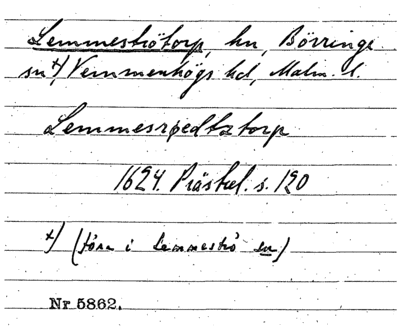 Lemmeströtorp, hn, Börringe
sn x), Vemmenhögs hd, Malm. l.
Lemmesrødtztorp
1624. Prästrel. s. 120
x) (förr i Lemmeströ sn)
Nr 5862.